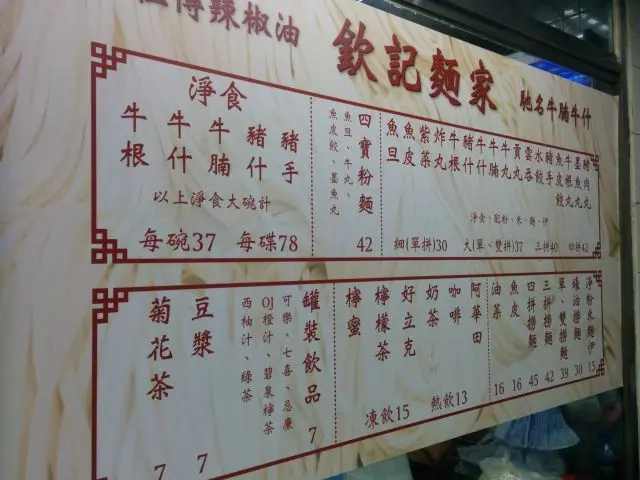 傅辣椒油
欽記麵家
馳名牛腩牛什
淨食
牛根
牛什
牛腩
豬什
豬手
以上淨食大碗計
每碗37 每碟78
四寶粉麵
魚旦、牛丸、
魚皮餃、墨魚丸
42
魚旦
魚皮
紫菜
炸丸
牛根
豬什
牛什
牛腩
牛丸
貢丸
雲吞
水餃
豬手
魚皮餃
牛根丸
墨魚丸
豬肉丸
淨食、配粉、米、麵、伊
細(單拼)30 大(單、雙拼)37 三拼40 四拼42
菊花茶 7
豆漿 7
罐裝飲品 7
可樂、七喜、忌廉
OJ橙汁、碧泉檸茶
西柚汁、綠茶
檸蜜
檸檬茶
好立克
奶茶
咖啡
阿華田
凍飲15 熱飲13
油菜 16
魚皮 16
四拼撈麵 45
三拼撈麵 42
單、雙撈麵 39
蠔油撈麵 30
淨粉米麵伊 15